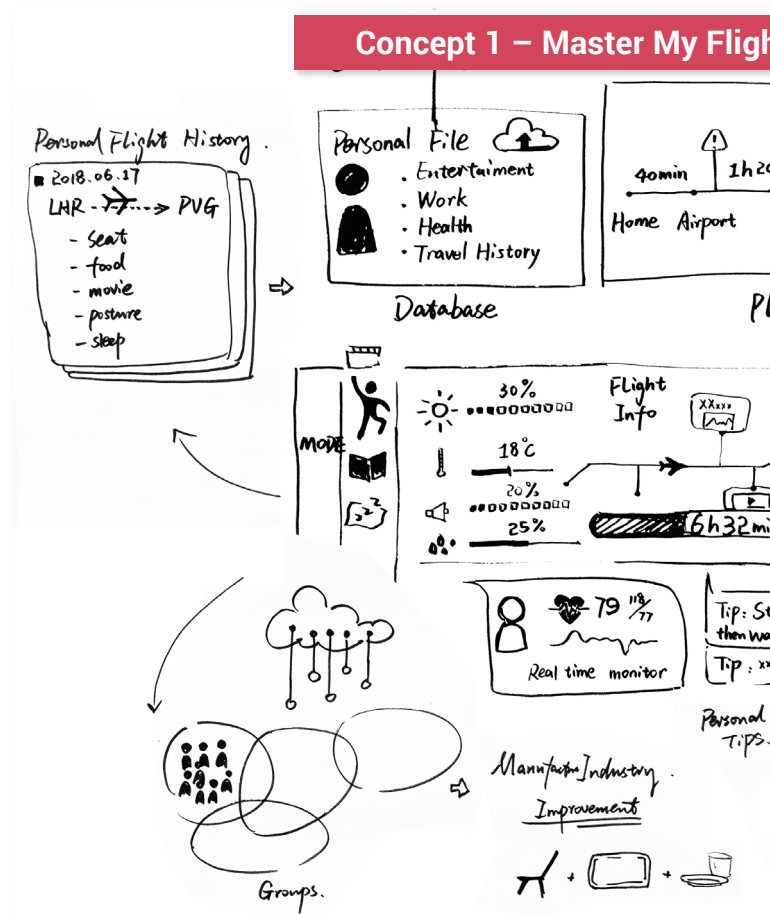 Concept 1 – Master My Fligh
Personal Flight History.
2018.06.17
LHR PVG
- seat
- food
- movie
- posture
- sleep
Personal File
. Entertaiment
. Work
. Health
. Travel History
Database
40min
1h20
Home Airport
Pl
MODE
zzz
30%
18°C
20%
25%
Flight
Info
XXxxx
6h32mi
79 118/77
Real time monitor
Tip: St
then wa
Tip: xx
Personal
Tips.
Industry.
Improvement
Groups.